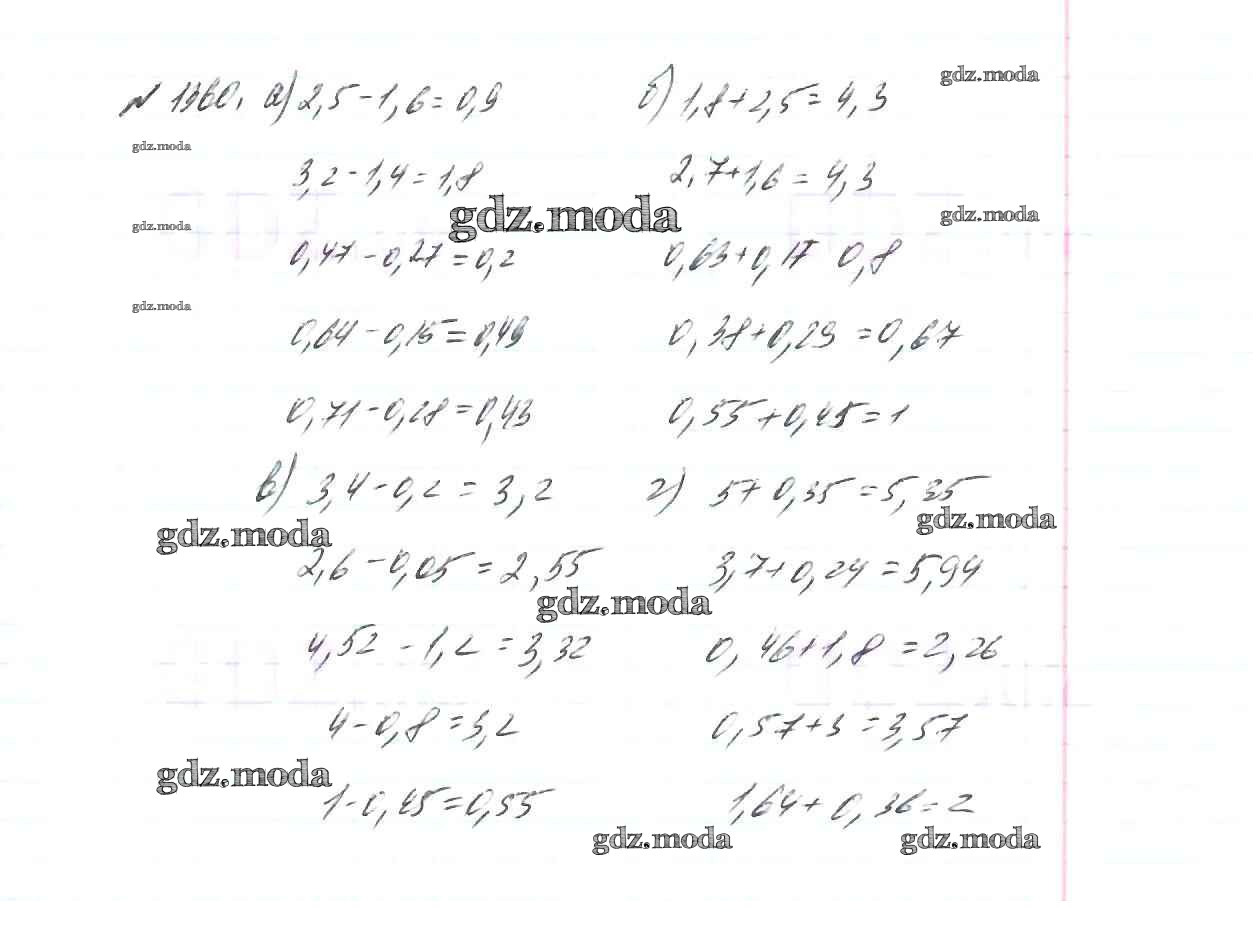 № 1360. а) 2,5-1,6=0,9 б) 1,8+2,5=4,3
gdz.moda
gdz.moda
3,2-1,4=1,8 2,7+1,6=4,3
gdz.moda
gdz.moda
gdz.moda
0,47-0,27=0,2 0,63+0,17 0,8
gdz.moda
0,64-0,15=0,49 0,38+0,29=0,67
0,71-0,28=0,43 0,55+0,45=1
в) 3,4-0,2=3,2 г) 5+0,35=5,35
gdz.moda
gdz.moda
2,6-0,05=2,55 3,7+0,24=5,94
gdz.moda
4,52-1,2=3,32 0,46+1,8=2,26
4-0,8=3,2 0,57+3=3,57
gdz.moda
1-0,45=0,55 1,64+0,36=2
gdz.moda
gdz.moda